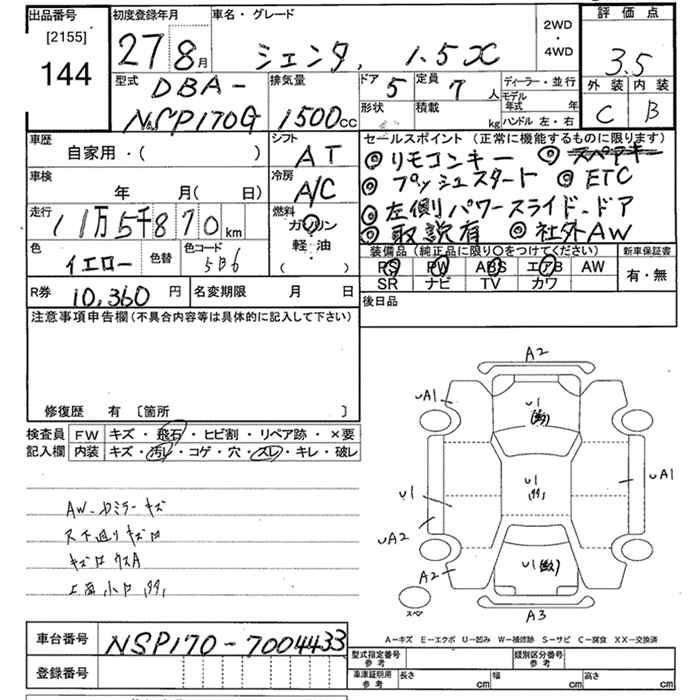 出品番号
[2155]
144
初度登録年月
27 8月
車名・グレード
シエンタ, 1.5X
2WD
・
4WD
評価点
3.5
外装 内装
C B
型式
DBA-
NSP170G
排気量
1500cc
ドア 5
定員 7人
ディーラー・並行
形状
積載 kg
モデル年式 年
ハンドル 左・右
車歴
自家用・( )
シフト
AT
車検
年 月( 日)
冷房
A/C
走行
11万5千870km
燃料
ガソリン
軽・油
( )
色
イエロー
色替
色コード
5B6
R券 10,360円
名変期限 月 日
セールスポイント(正常に機能するものに限ります)
◎リモコンキー ◎スペアキー
◎プッシュスタート ◎ETC
◎左側パワースライドドア
◎取説有 ◎社外AW
装備品(純正品に限り○をつけてください)
新車保証書
PS PW ABS エアB AW
有・無
SR ナビ TV カワ
後日品
注意事項申告欄(不具合内容等は具体的に記入して下さい)
修復歴 有 〔箇所 〕
検査員
記入欄
FW キズ・飛石・ヒビ割・リペア跡・×要
内装 キズ・汚レ・コゲ・穴・スレ・キレ・破レ
AW-カミラーキズ
ス下廻りキズ
A2
UA1
U1
U1
UA1
U1
UA2
A2
U1
スペア
A3
A-キズ E-エクボ U-凹み W-補修跡 S-サビ C-腐食 XX-交換済
車台番号 NSP170-7004433
登録番号
型式指定番号
参考
類別区分番号
参考
車庫証明用
参考
長さ cm
幅 cm
高さ cm